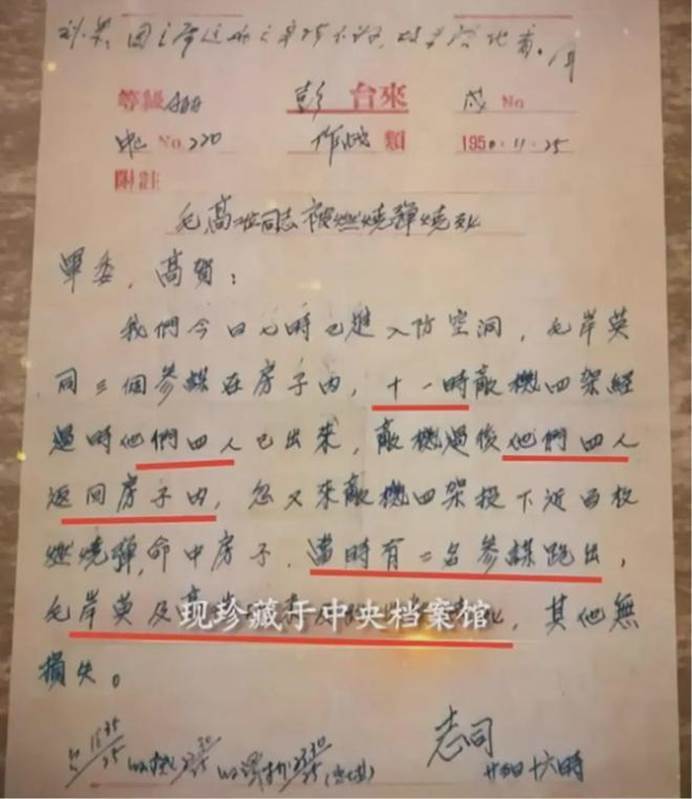 等級AAA 彭台來 戌 No
No.220 作战類 1950.11.25
附註
毛高二位同志被燃燒彈燒死
軍委,高賀:
我們今日七時已進入防空洞,毛岸英
同三個參謀在房子內,十一時敵機四架經
過時他們四人已出來,敵機過後他們四人
返回房子內,忽又來敵機四架投下近百枚
燃燒彈,命中房子,當時有二名參謀跑出,
毛岸英及高
现珍藏于中央档案馆
,其他無
損失。
志司
十六時